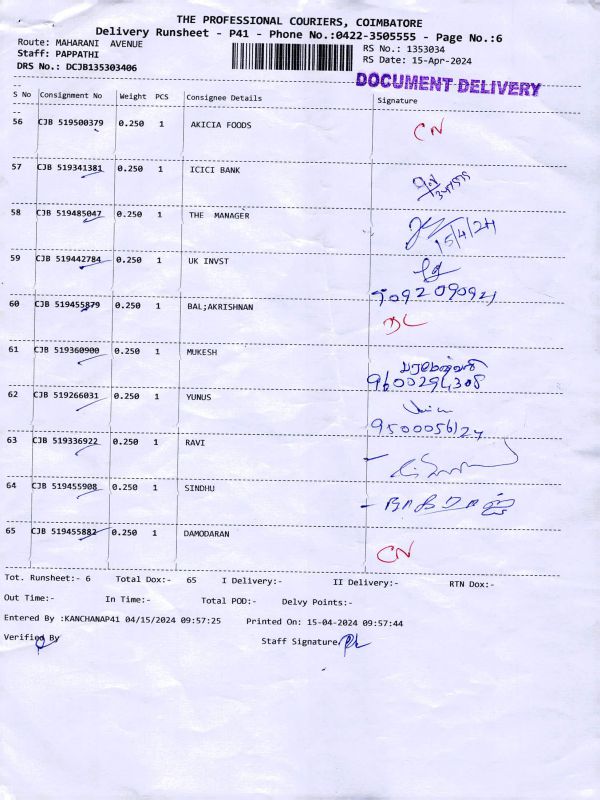 THE PROFESSIONAL COURIERS, COIMBATORE
Delivery Runsheet - P41 - Phone No.:0422-3505555 - Page No.:6
Route: MAHARANI AVENUE
RS No.: 1353034
Staff: PAPPATHI
RS Date: 15-Apr-2024
DRS No.: DCJB135303406
DOCUMENT DELIVERY
S No Consignment No Weight PCS Consignee Details Signature
56 CJB 519500379 0.250 1 AKICIA FOODS CN
57 CJB 519341381 0.250 1 ICICI BANK
58 CJB 519485047 0.250 1 THE MANAGER 15/4/24
59 CJB 519442784 0.250 1 UK INVST
9092090921
60 CJB 519455879 0.250 1 BAL;AKRISHNAN DL
61 CJB 519360900 0.250 1 MUKESH
9600294308
62 CJB 519266031 0.250 1 YUNUS
9500056127
63 CJB 519336922 0.250 1 RAVI
64 CJB 519455908 0.250 1 SINDHU
65 CJB 519455882 0.250 1 DAMODARAN CN
Tot. Runsheet:- 6 Total Dox:- 65 I Delivery:- II Delivery:- RTN Dox:-
Out Time:- In Time:- Total POD:- Delvy Points:-
Entered By :KANCHANAP41 04/15/2024 09:57:25 Printed On: 15-04-2024 09:57:44
Verified By Staff Signature